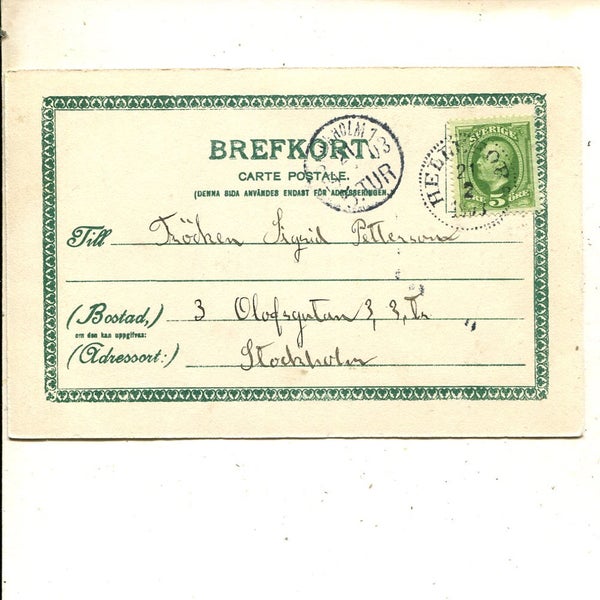 BREFKORT
CARTE POSTALE.
(DENNA SIDA ANVÄNDES ENDAST FÖR ADRESSERINGEN.)
SVERIGE
5 ÖRE
21
2
1903
TUR
Till Fröcken Sigrid Petterson
(Bostad,) 3 Olofsgatan 3, 3, Tr.
om den kan uppgifvas:
(Adressort:) Stockholm